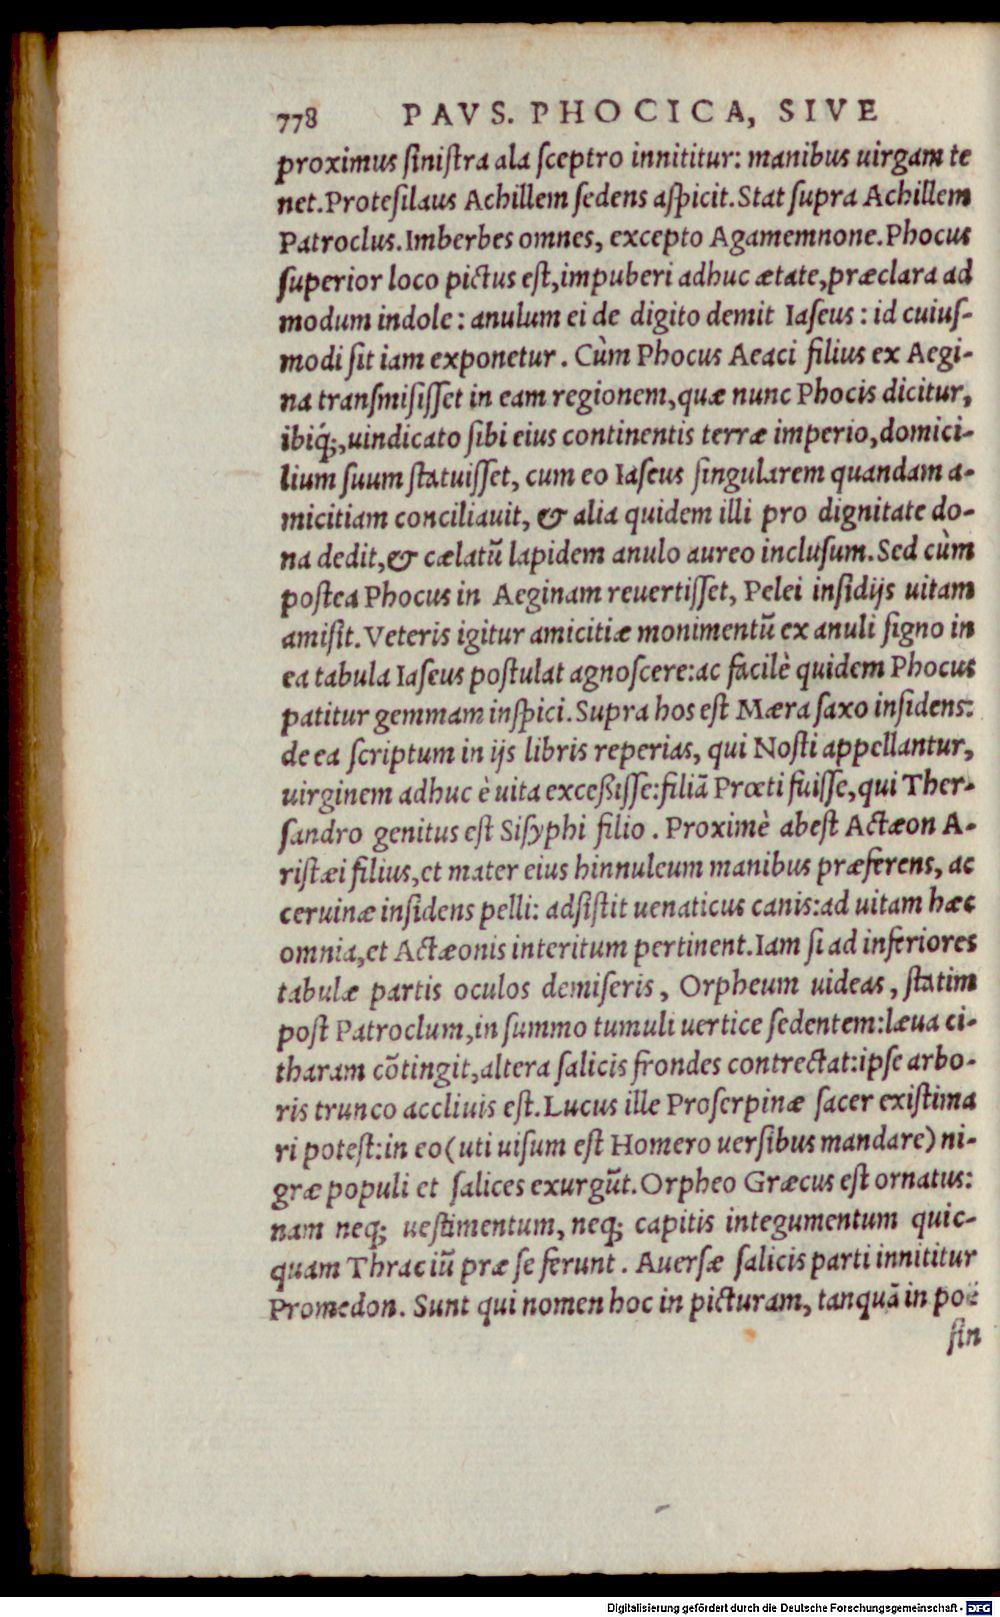 778 PAVS. PHOCICA, SIVE
proximus ſiniſtra ala ſceptro innititur: manibus uirgam te
net. Proteſilaus Achillem ſedens aſpicit. Stat ſupra Achillem
Patroclus. Imberbes omnes, excepto Agamemnone. Phocus
ſuperior loco pictus eſt, impuberi adhuc ætate, præclara ad
modum indole: anulum ei de digito demit Iaſeus: id cuiuſ-
modi ſit iam exponetur. Cùm Phocus Aeaci filius ex Aegi-
na tranſmiſiſſet in eam regionem, quæ nunc Phocis dicitur,
ibiq́;, uindicato ſibi eius continentis terræ imperio, domici-
lium ſuum ſtatuiſſet, cum eo Iaſeus ſingularem quandam a-
micitiam conciliauit, & alia quidem illi pro dignitate do-
na dedit, & cælatũ lapidem anulo aureo incluſum. Sed cùm
poſtea Phocus in Aeginam reuertiſſet, Pelei inſidijs uitam
amiſit. Veteris igitur amicitiæ monimentũ ex anuli ſigno in
ea tabula Iaſeus poſtulat agnoſcere: ac facilè quidem Phocus
patitur gemmam inſpici. Supra hos eſt Mæra ſaxo inſidens:
de ea ſcriptum in ijs libris reperias, qui Noſti appellantur,
uirginem adhuc è uita exceßiſſe: filiã Prœti fuiſſe, qui Ther-
ſandro genitus eſt Siſyphi filio. Proximè abeſt Actæon A-
riſtæi filius, et mater eius hinnuleum manibus præferens, ac
ceruinæ inſidens pelli: adſiſtit uenaticus canis: ad uitam hæc
omnia, et Actæonis interitum pertinent. Iam ſi ad inferiores
tabulæ partis oculos demiſeris, Orpheum uideas, ſtatim
poſt Patroclum, in ſummo tumuli uertice ſedentem: læua ci-
tharam cõtingit, altera ſalicis frondes contrectat: ipſe arbo-
ris trunco accliuis eſt. Lucus ille Proſerpinæ ſacer exiſtima
ri poteſt: in eo (uti uiſum eſt Homero uerſibus mandare) ni-
græ populi et ſalices exurgũt. Orpheo Græcus eſt ornatus:
nam neq; ueſtimentum, neq; capitis integumentum quic-
quam Thraciũ præ ſe ferunt. Auerſæ ſalicis parti innititur
Promedon. Sunt qui nomen hoc in picturam, tanquã in poë
ſin
Digitalisierung gefördert durch die Deutsche Forschungsgemeinschaft - DFG